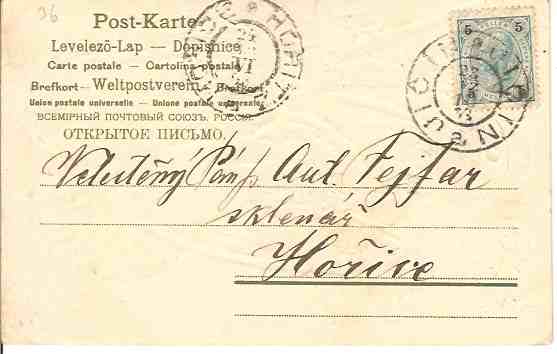 36
Post-Karte
Levelező-Lap — Dopisnice
Carte postale — Cartolina postale
Brefkort — Weltpostverein — Brefkort
Union postale universelle — Unione postale universale
ВСЕМІРНЫЙ ПОЧТОВЫЙ СОЮЗЪ. РОССІЯ
ОТКРЫТОЕ ПИСЬМО.
5 5
Ant. Fejfar
sklenář
Hořice